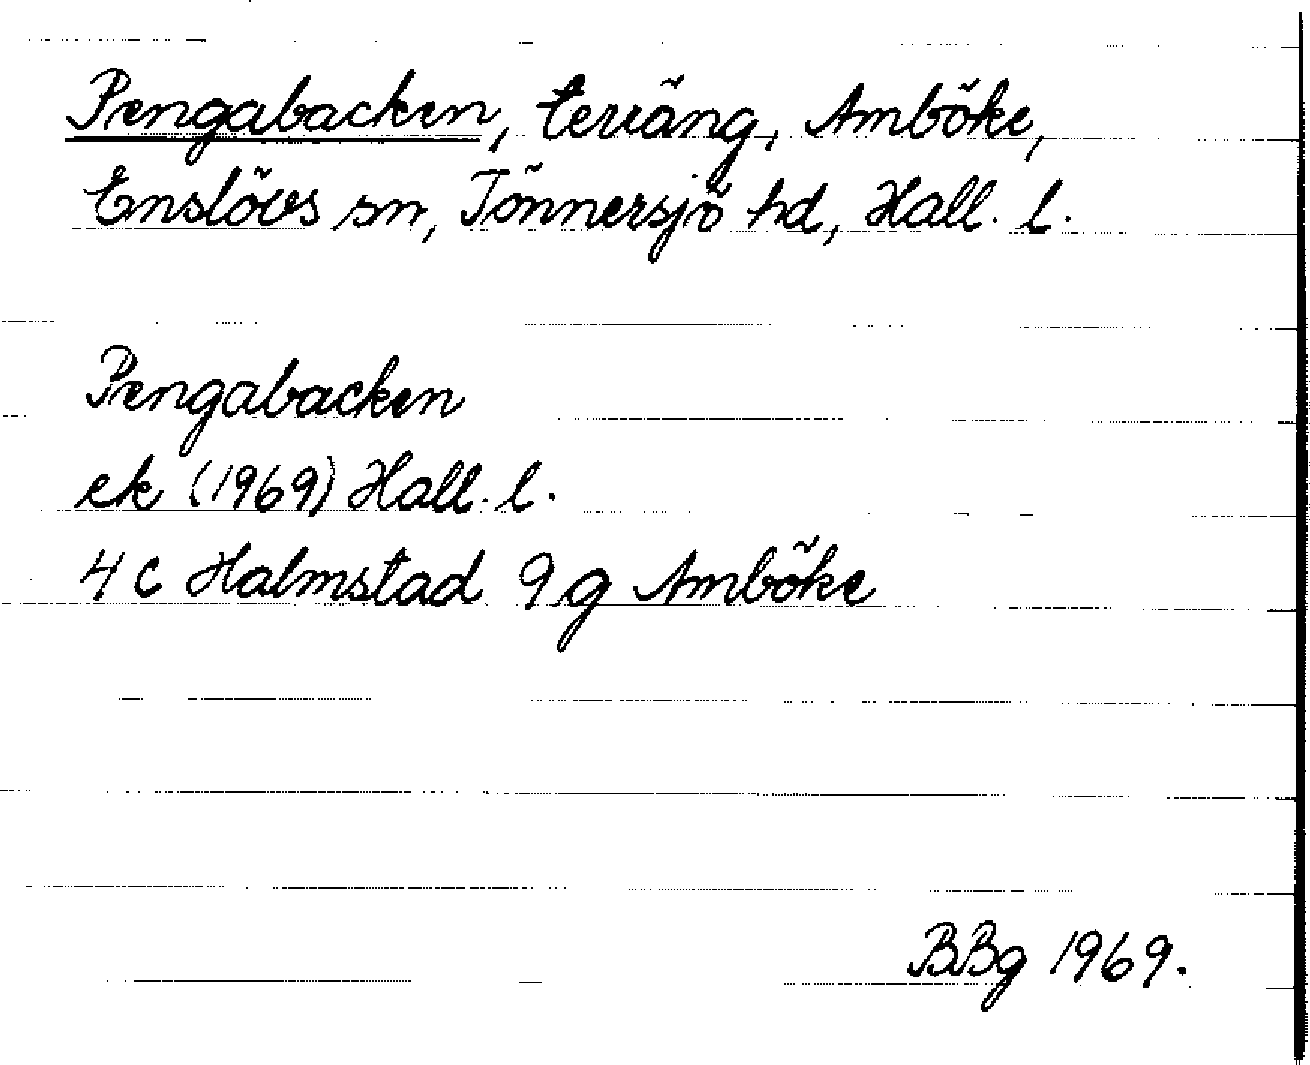 Pengabacken, terräng, Amböke,
Enslövs sn, Tönnersjö hd, Hall. l.
Pengabacken
ek (1969) Hall. l.
4 C Halmstad 9 g Amböke
BBg 1969.